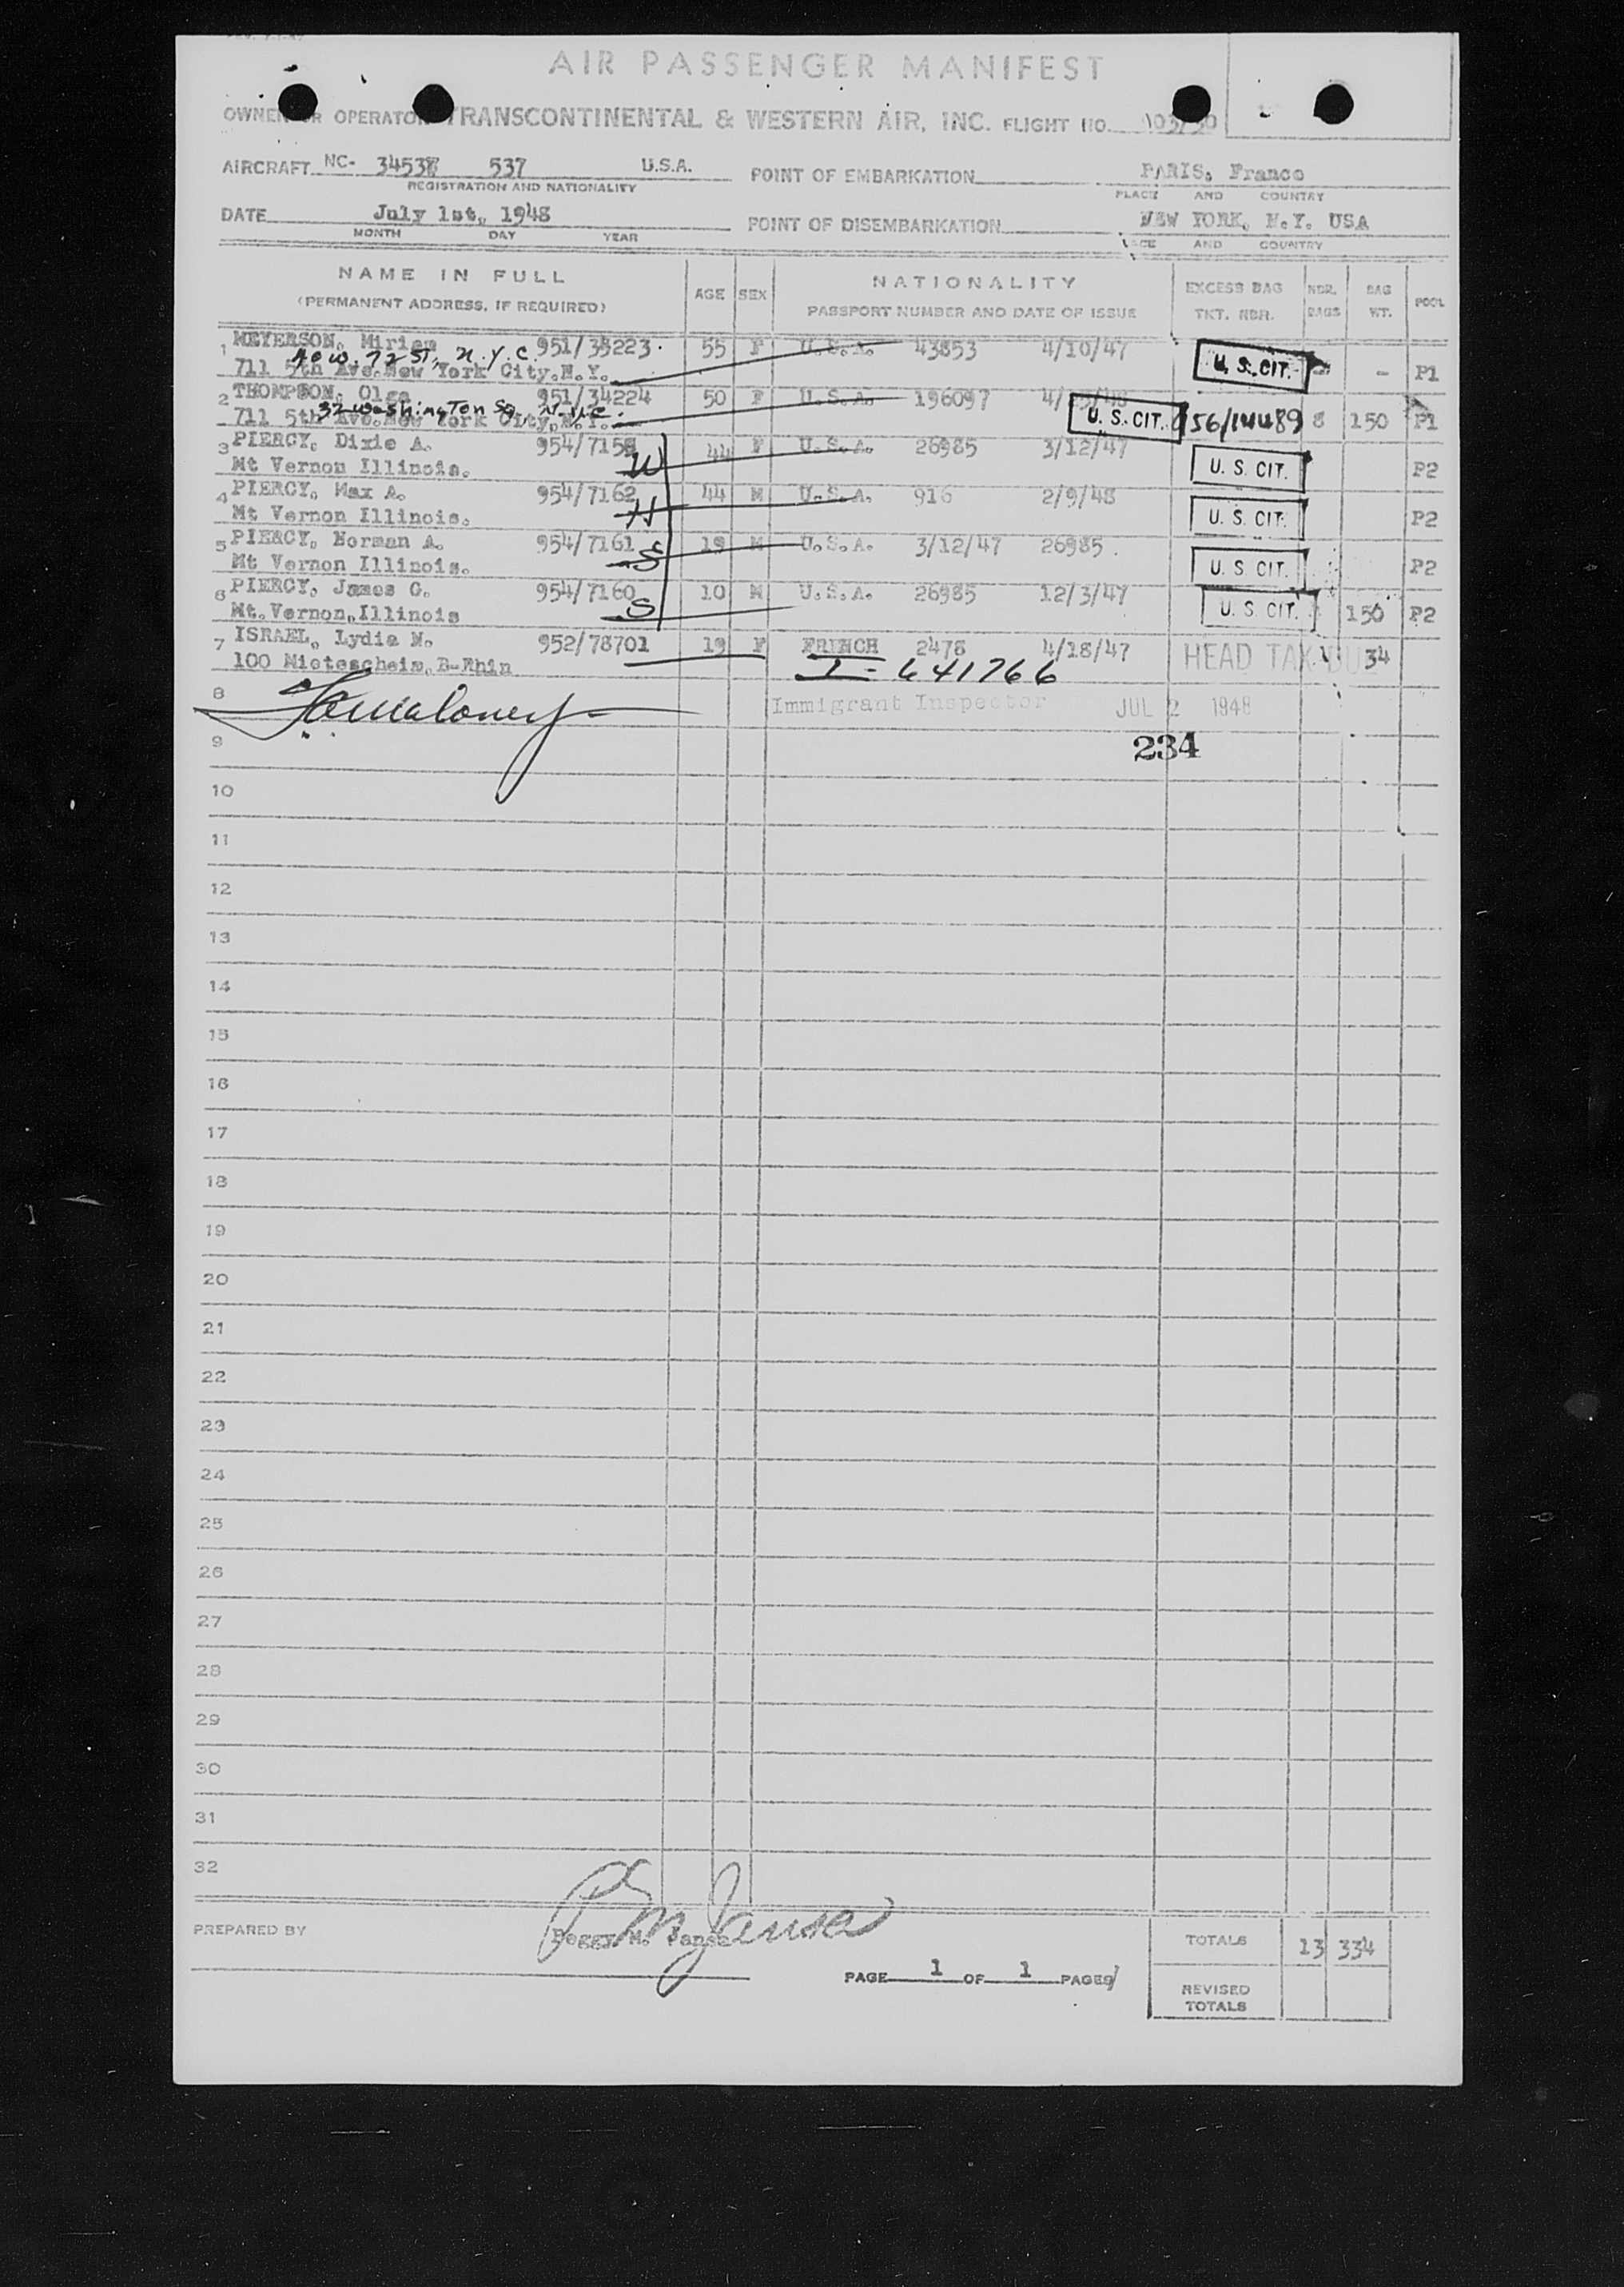 AIR PASSENGER MANIFEST
OWNER OR OPERATOR TRANSCONTINENTAL & WESTERN AIR, INC. FLIGHT NO.
AIRCRAFT NC- 537 U.S.A. POINT OF EMBARKATION PARIS, France
REGISTRATION AND NATIONALITY PLACE AND COUNTRY
DATE July 1st, 1948 POINT OF DISEMBARKATION NEW YORK, N.Y. USA
MONTH DAY YEAR PLACE AND COUNTRY
NAME IN FULL AGE SEX NATIONALITY EXCESS BAG NBR. BAG POOL
(PERMANENT ADDRESS, IF REQUIRED) PASSPORT NUMBER AND DATE OF ISSUE TKT. NBR. BAGS WT.
1 MEYERSON, Miriam 951/35223 55 F U.S.A. 43853 4/10/47 U. S. CIT. - - P1
W. 72 ST. N.Y.C.
711 5th Ave. New York City, N.Y.
2 THOMPSON, Olga 951/34224 50 F U.S.A. 196097 U. S. CIT. 56/14489 8 150 P1
32 Washington Sq. N.Y.C.
711 5th Ave. New York City, N.Y.
3 PIERCY, Dixie A. 954/7159 W 44 F U.S.A. 26985 3/12/47 U. S. CIT. P2
Mt Vernon Illinois.
4 PIERCY, Max A. 954/7162 H 44 M U.S.A. 916 2/9/48 U. S. CIT. P2
Mt Vernon Illinois.
5 PIERCY, Norman A. 954/7161 S 19 M U.S.A. 3/12/47 26985 U. S. CIT. P2
Mt Vernon Illinois.
6 PIERCY, James G. 954/7160 S 10 M U.S.A. 26985 12/3/47 U. S. CIT. 150 P2
Mt. Vernon, Illinois
7 ISRAEL, Lydia N. 952/78701 19 F FRENCH 2478 4/18/47 HEAD TAX DUE 34
100 Mietescheim, B-Rhin I-641766
8 Immigrant Inspector JUL 2 1948
9 234
10
11
12
13
14
15
16
17
18
19
20
21
22
23
24
25
26
27
28
29
30
31
32
PREPARED BY Peggy M. Jansa TOTALS 13 334
PAGE 1 OF 1 PAGES
REVISED
TOTALS